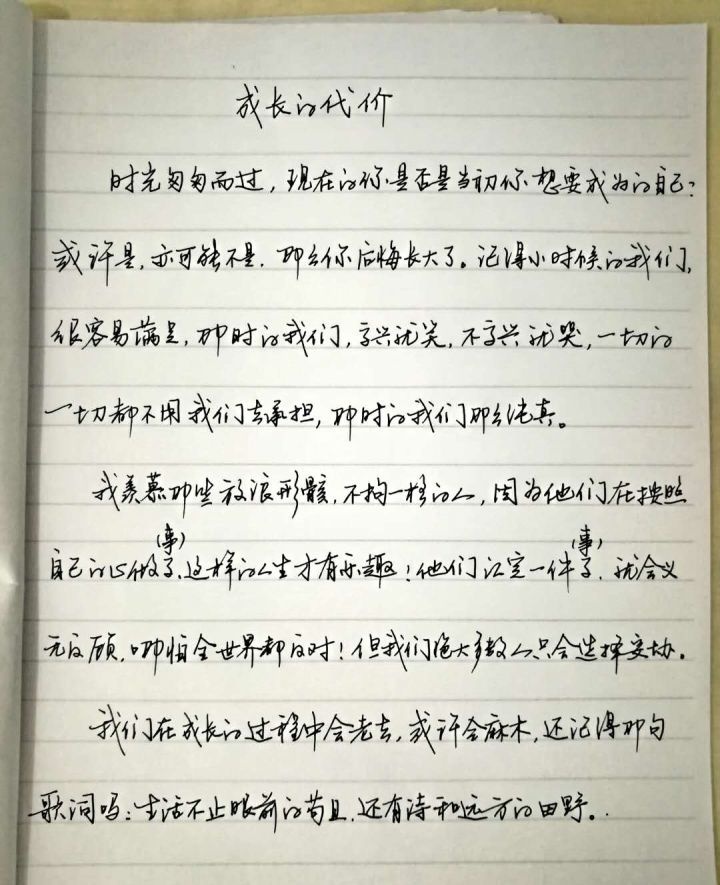 成长的代价
时光匆匆而过，现在的你是否是当初你想要成为的自己？
或许是，亦可能不是，那么你后悔长大了。记得小时候的我们，
很容易满足，那时的我们，高兴就笑，不高兴就哭，一切的
一切都不用我们去承担，那时的我们那么纯真。
我羡慕那些放浪形骸，不拘一格的人，因为他们在按照
(事) (事)
自己的心做事，这样的人生才有乐趣！他们认定一件事，就会义
无反顾，哪怕全世界都反对！但我们绝大多数人只会选择妥协。
我们在成长的过程中会老去，或许会麻木，还记得那句
歌词吗：生活不止眼前的苟且，还有诗和远方的田野。